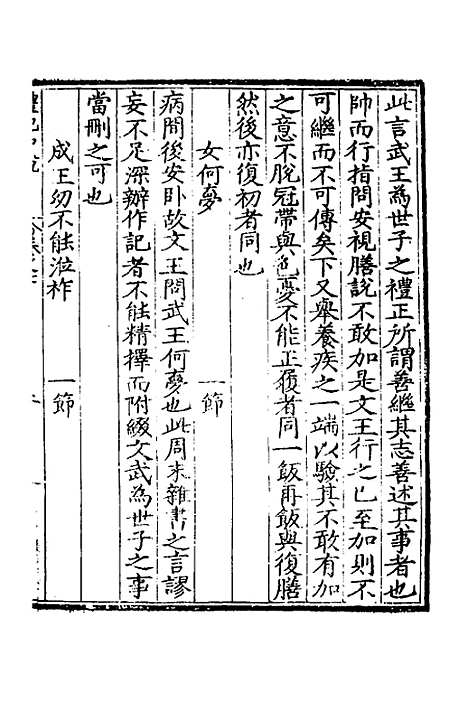 此言武王為世子之禮正所謂善繼其志善述其事者也
帥而行指問安視膳說不敢加是文王行之已至加則不
可繼而不可傳矣下又舉養疾之一端以驗其不敢有加
之意不脫冠帶與色憂不能正履者同一飯再飯與復膳
然後亦復初者同也
女何夢 一節
病間後安卧故文王問武王何夢也此周末雜書之言謬
妄不足深辦作記者不能精擇而附綴文武為世子之事
當刪之可也
成王幼不能涖祚 一節